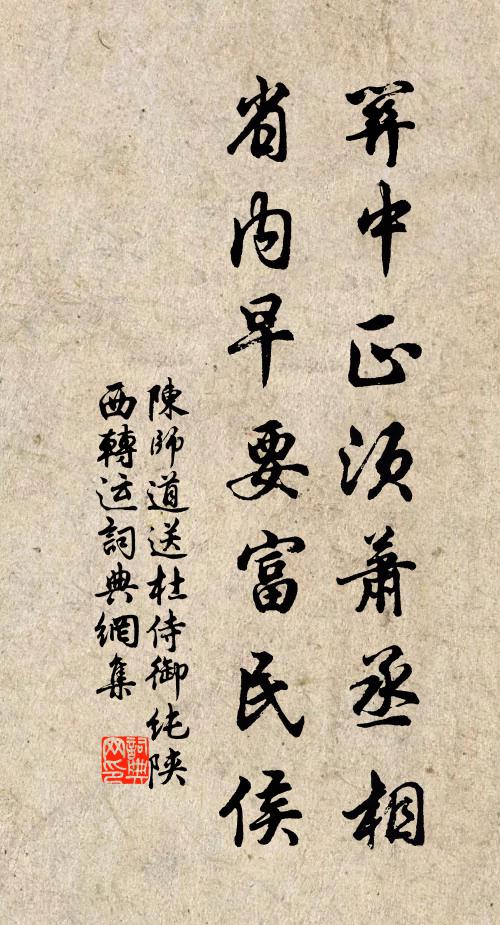 關中正須蕭丞相
省內早要富民侯
陳師道送杜侍御純陝
西轉运詞典網集
詞典网印